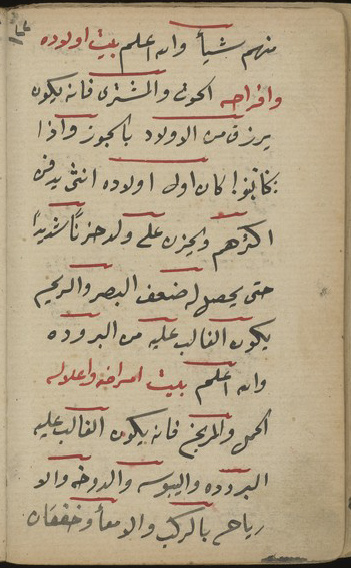 منهم شيأ والله اعلم بيت اولاده
وافراحه الحوت والمشترى فانه يكون
يرزق من الاولاد بالجوز واذا
كان اول اولاده انثى يدفن
اكثرهم ويحزن على ولد حزنا شديدا
حتى يحصل له ضعف البصر والريح
يكون الغالب عليه من البروده
والله اعلم بيت امراضه واعلاله
الحمل والمريخ فانه يكون الغالب عليه
البروده واليبوسه والدوخه والا
رياح بالركب والامعأ وخفقان